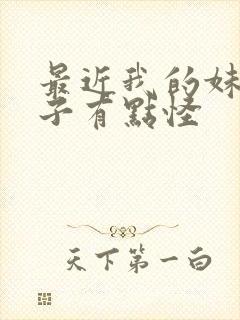 最近我的妹
子有點怪
天下第一白